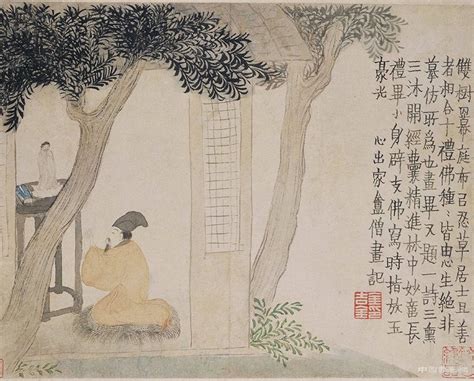 樹庭布忍草居士且善
者相合十禮佛種種皆生絕非
摹仿所爲也畫畢又題一詩三熏
三沐開經囊精進林中妙音長
禮畢小身辟支佛寫時指放玉
毫光 心出家盦僧畫記